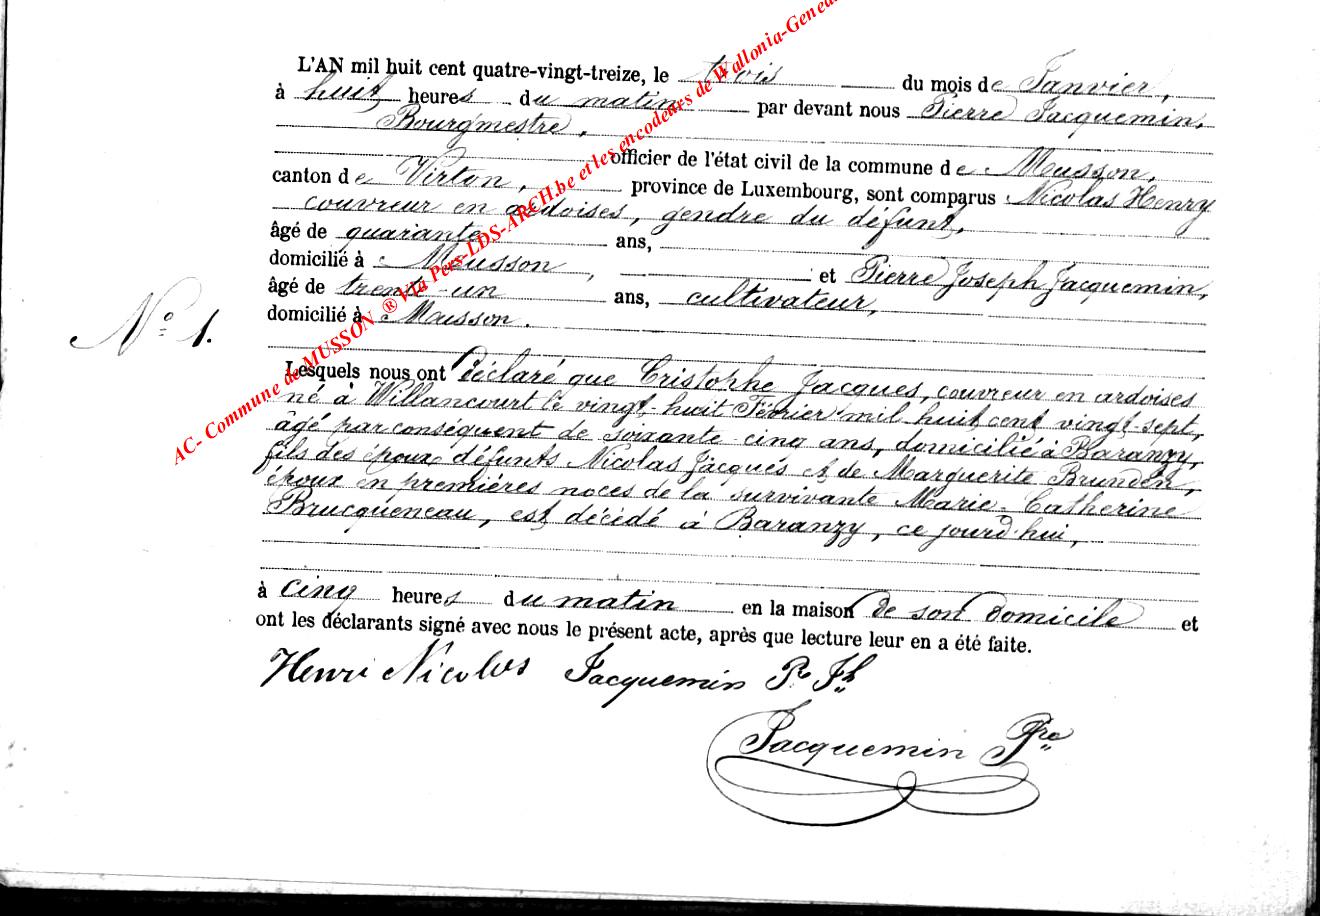 L'AN mil huit cent quatre-vingt-treize, le trois du mois de Janvier,
à huit heures du matin par devant nous Pierre Jacquemin,
Bourgmestre,
officier de l'état civil de la commune de Musson,
canton de Virton, province de Luxembourg, sont comparus Nicolas Henry
couvreur en ardoises, gendre du défunt,
âgé de quarante ans,
domicilié à Musson, et Pierre Joseph Jacquemin,
âgé de trente-un ans, cultivateur,
domicilié à Musson.
N° 1.
Lesquels nous ont déclaré que Cristophe Jacques, couvreur en ardoises
né à Willancourt le vingt-huit Février mil huit cent vingt-sept,
âgé par conséquent de soixante-cinq ans, domicilié à Baranzy,
fils des époux défunts Nicolas Jacques et de Marguerite Brunden,
époux en premières noces de la survivante Marie-Catherine
Brucqueneau, est décédé à Baranzy, ce jourd'hui,
à cinq heures du matin en la maison de son domicile et
ont les déclarants signé avec nous le présent acte, après que lecture leur en a été faite.
Henri Nicolas Jacquemin P. Jh
Jacquemin Pre
AC- Commune de MUSSON ® Via Pers-LDS-ARCH.be et les encodeurs de Wallonia-Genea